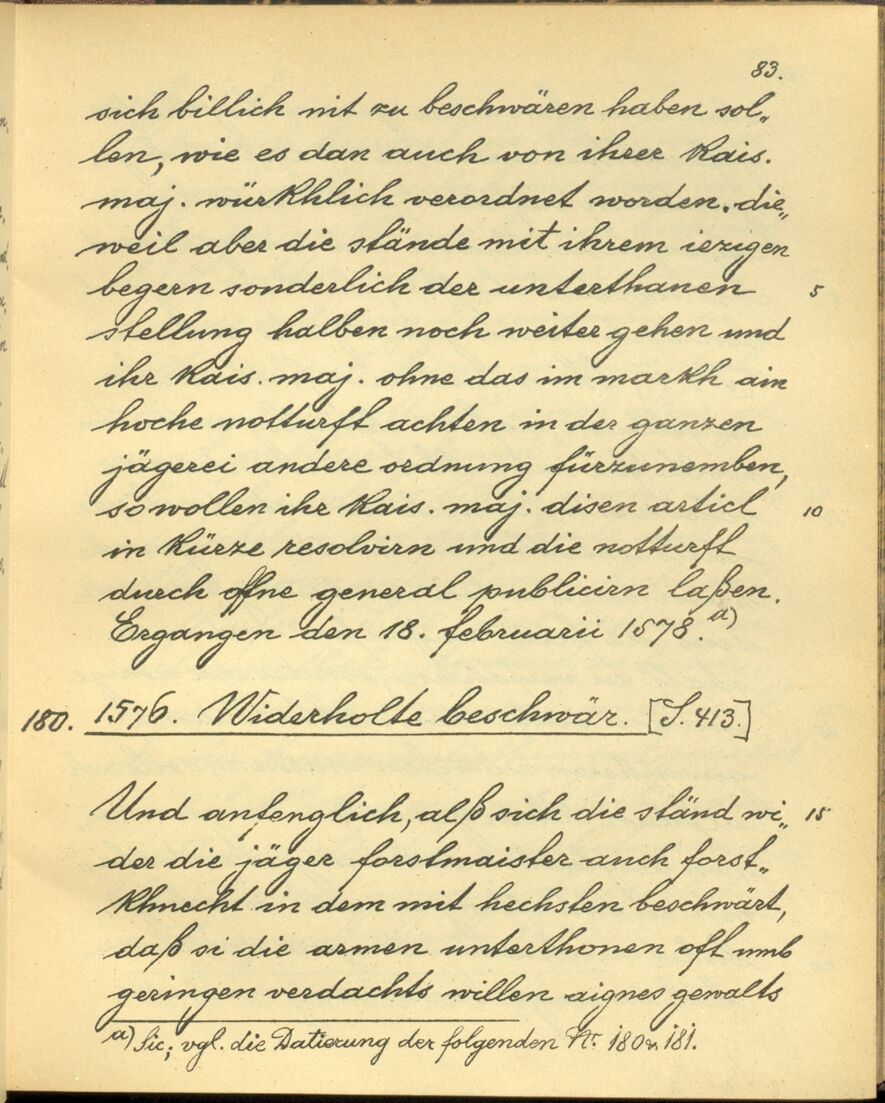 83.
sich billich nit zu beschwären haben sol„
len, wie es dan auch von ihrer kais.
maj. würkhlich verordnet worden. die„
weil aber die stände mit ihrem iezigen
begern sonderlich der unterthanen 5
stellung halben noch weiter gehen und
ihr kais. maj. ohne das im markh ain
hoche notturft achten in der ganzen
jägerei andere ordnung fürzunemben,
so wollen ihr kais. maj. disen articl 10
in kürze resolvirn und die notturft
durch offne general publicirn laßen.
Ergangen den 18. februarii 1578. a)
180. 1576. Widerholte beschwär. [S. 413.]
Und anfenglich, alß sich die ständ wi„ 15
der die jäger forstmaister auch forst„
khnecht in dem mit hechsten beschwärt,
daß si die armen unterthonen oft umb
geringen verdachts willen aignes gewalts
a) Sic; vgl. die Datierung der folgenden Nr. 180 u. 181.